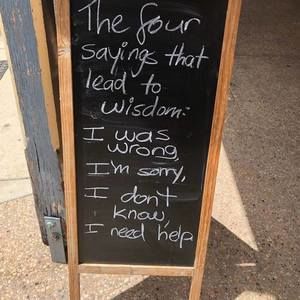 The four
sayings that
lead to
wisdom:
I was
wrong,
I'm sorry,
I don't
know,
I need help